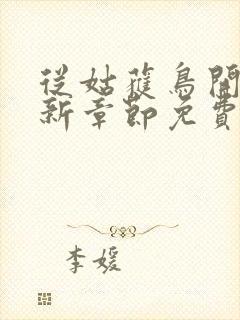 從姑蒦鳥開
新章節免費
李媛